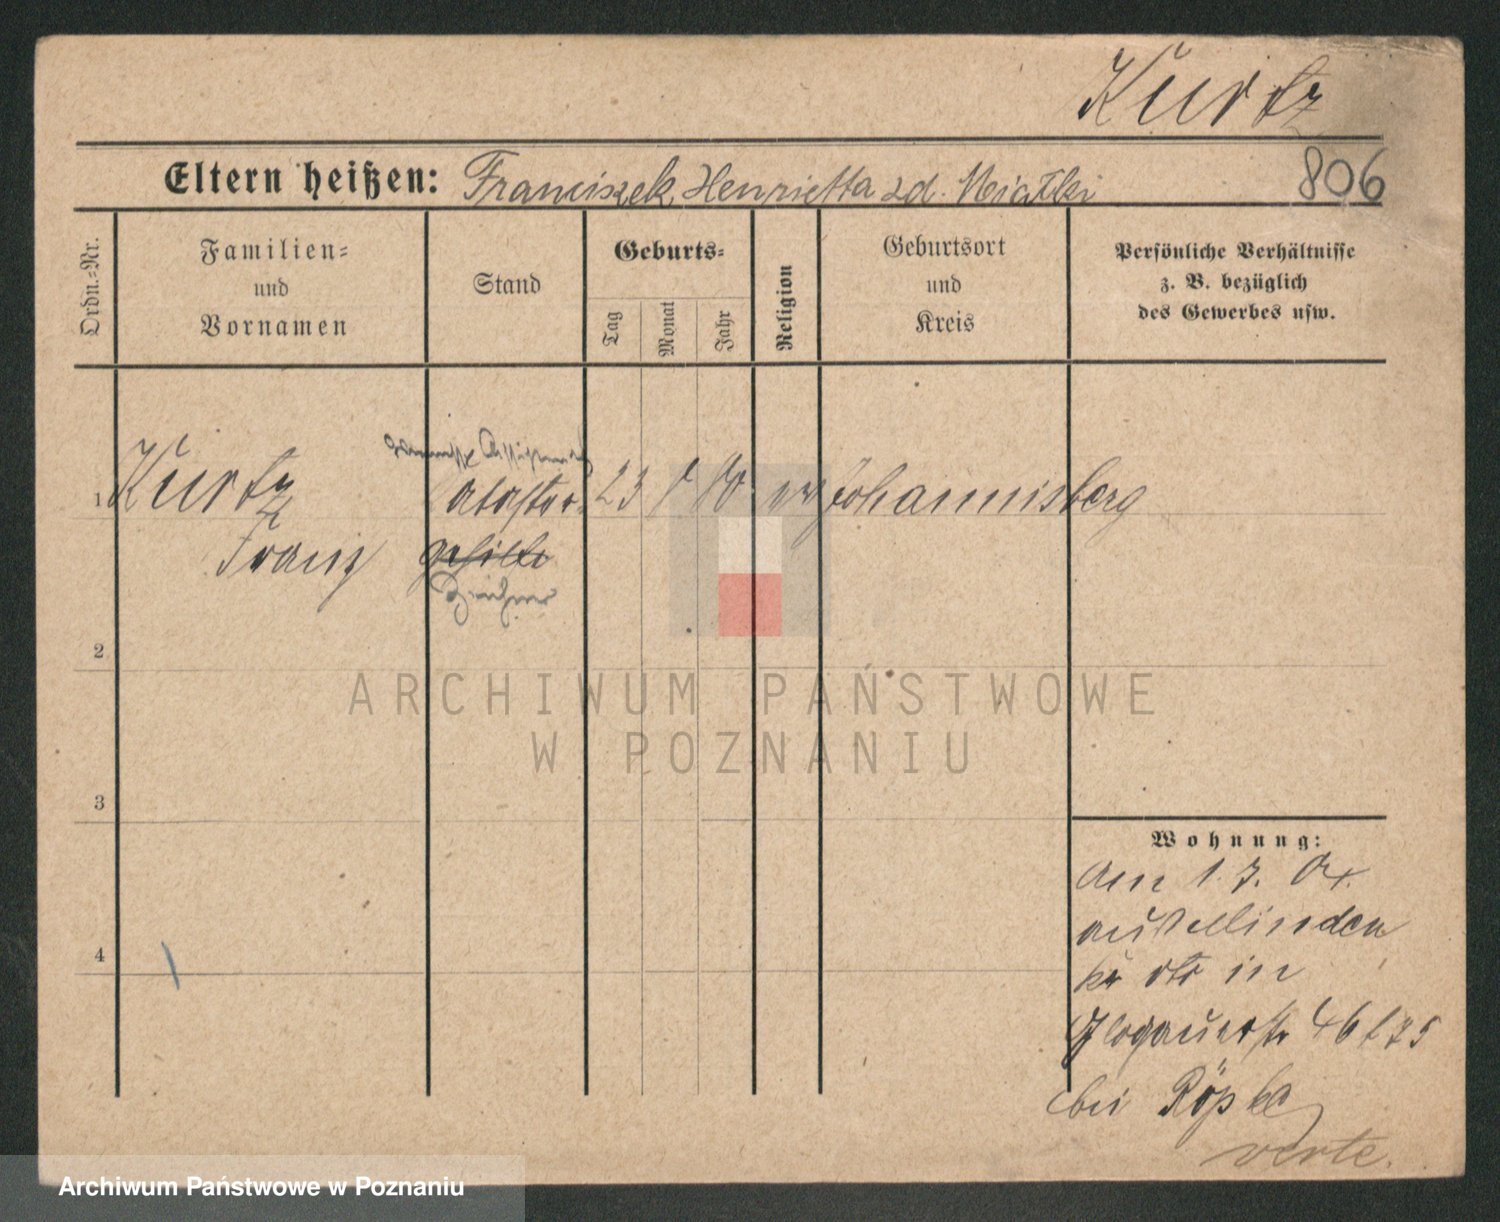 Kurtz
806
Eltern heißen: Franciszek, Henrietta zd. Miatki
Ordn.=Nr.
Familien=
und
Vornamen
Stand
Geburts=
Tag
Monat
Jahr
Religion
Geburtsort
und
Kreis
Persönliche Verhältnisse
z. B. bezüglich
des Gewerbes usw.
1 Kurtz 23 Johannisberg
Franz gehilfe
Zeichner
2
3
4
Wohnung:
Am 1.7. 04
aus Minden
in
Glogauerstr 46
bei Röpke
verte.
ARCHIWUM PAŃSTWOWE
W POZNANIU
Archiwum Państwowe w Poznaniu